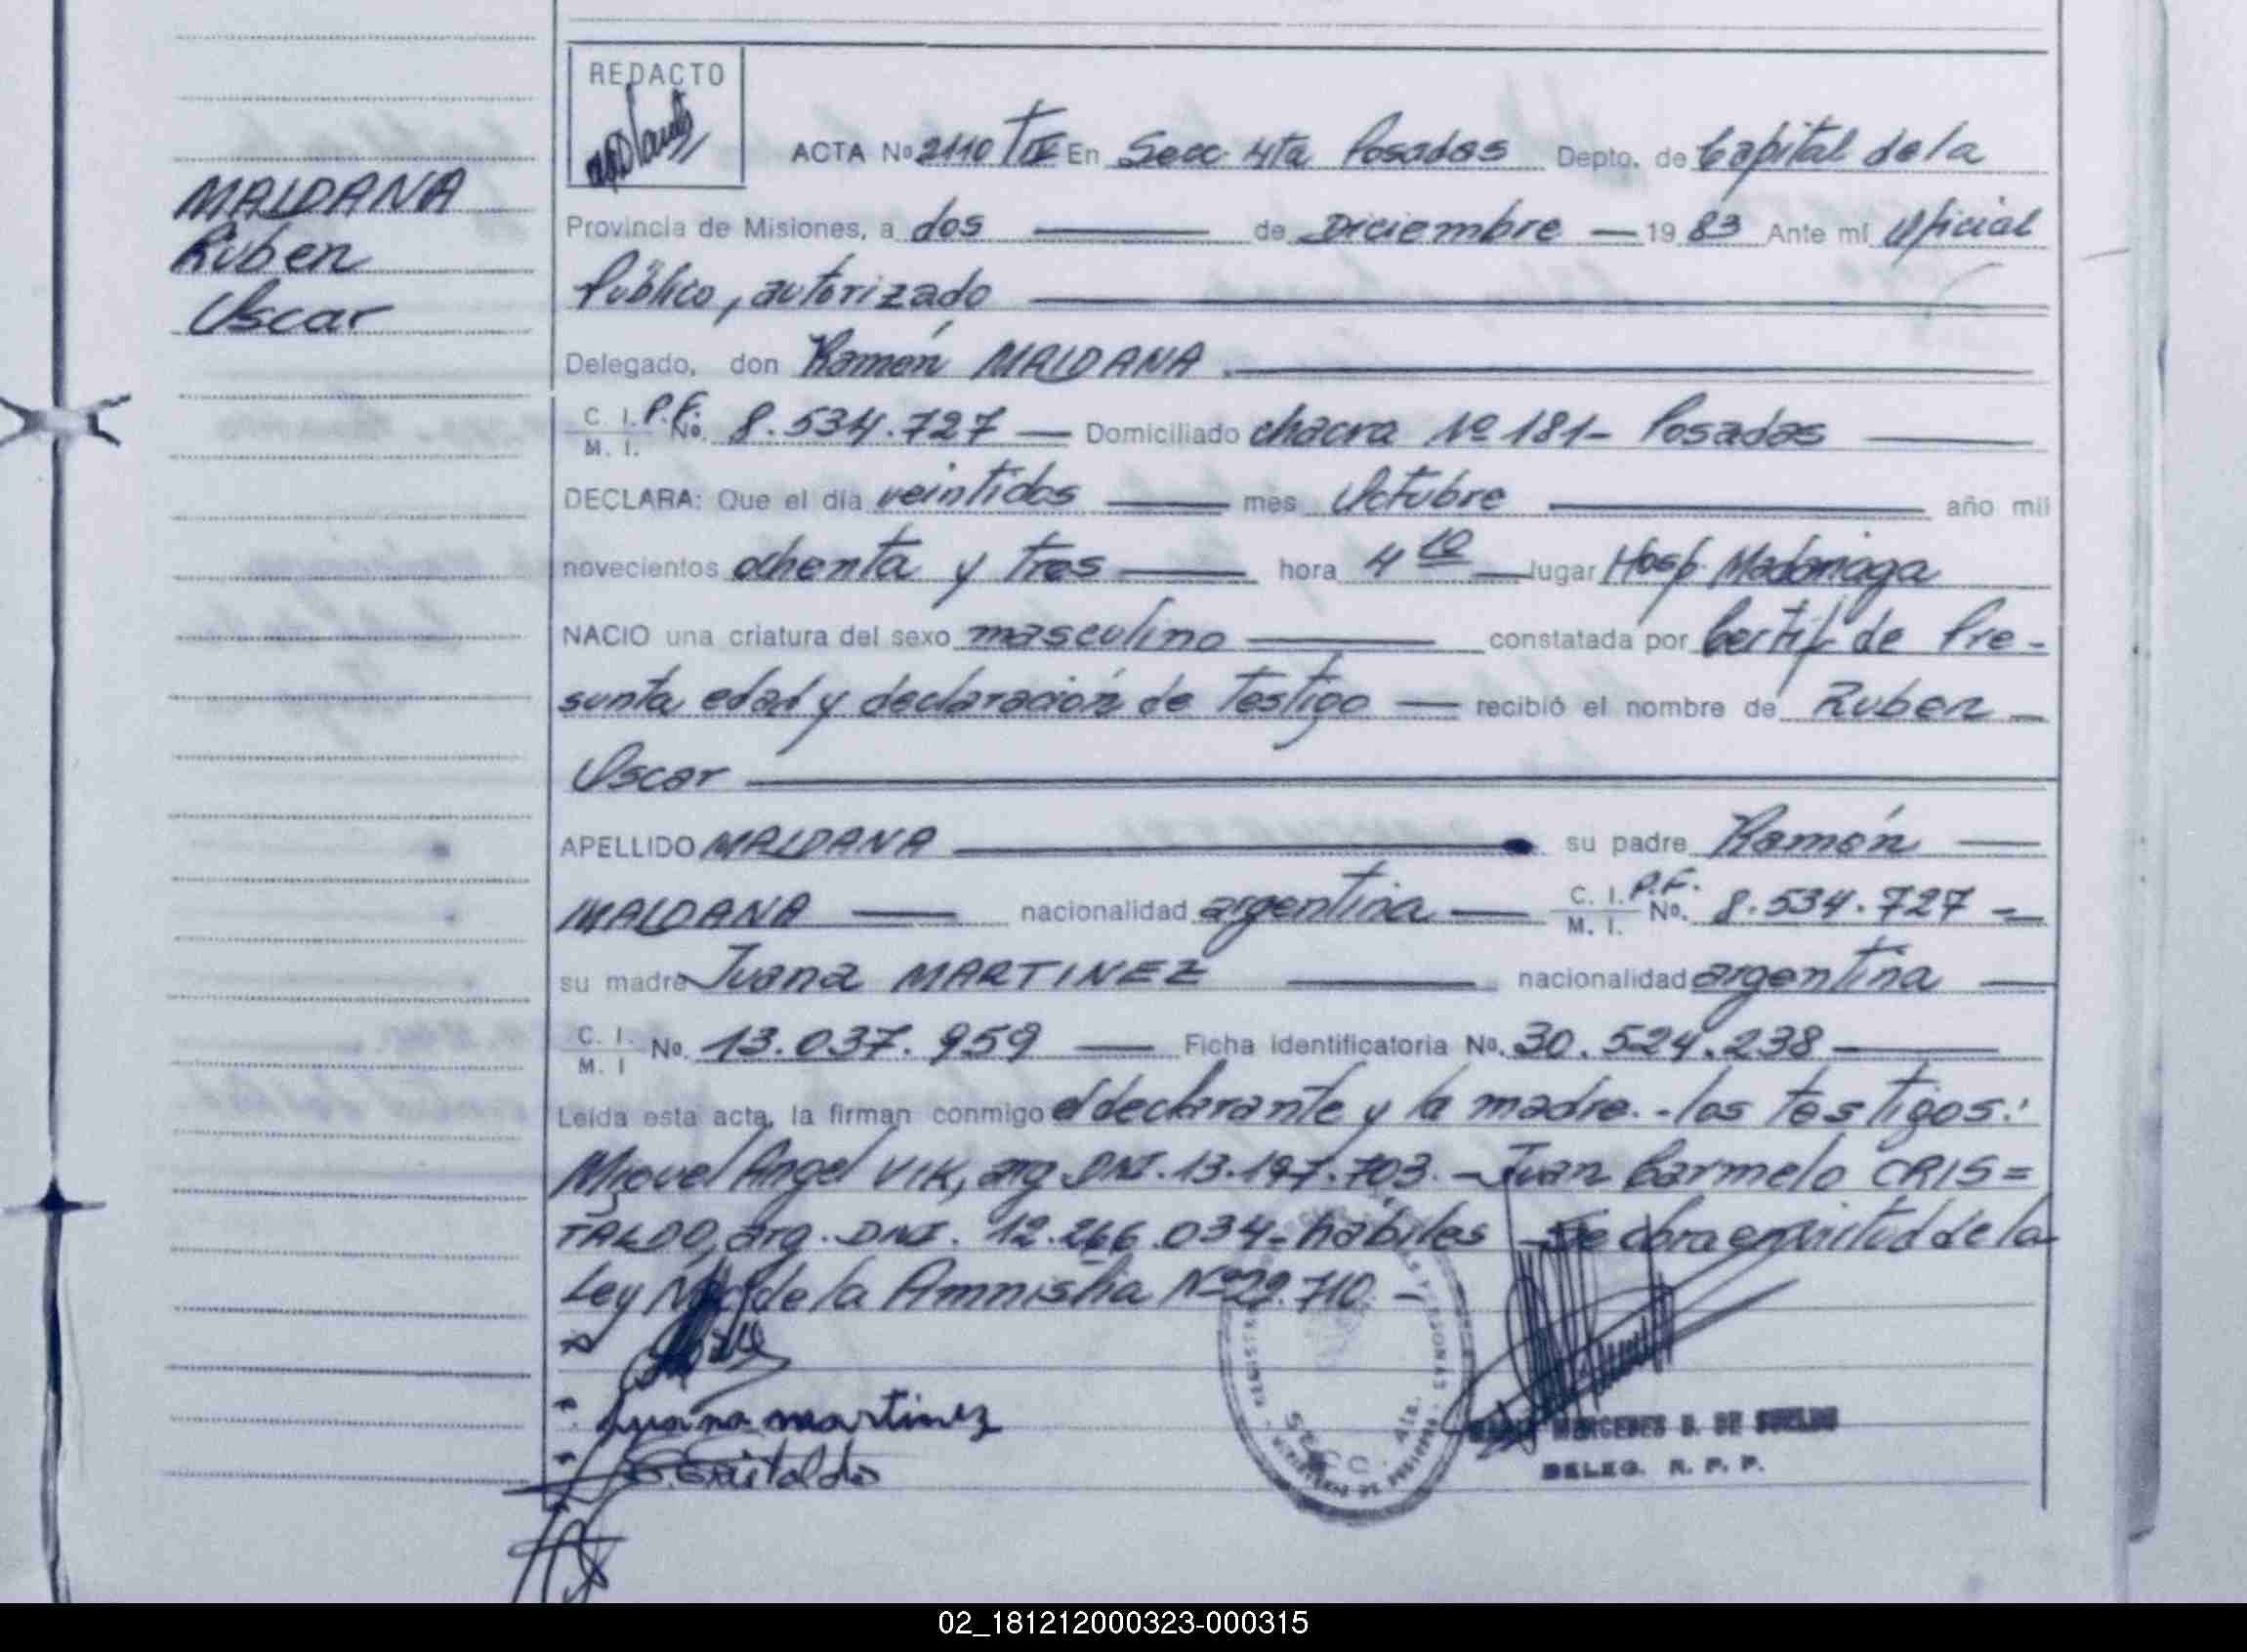 REDACTO
ACTA Nº 2110 TIV En Secc. 4ta Posadas Depto. de Capital de la
MALDANA
Ruben
Oscar
Provincia de Misiones, a dos de Diciembre — 19 83 Ante mí Oficial
Público, autorizado
Delegado, don Ramón MALDANA
C. I. P.F. M. I. No. 8.534.727 — Domiciliado chacra Nº 181- Posadas
DECLARA: Que el día veintidos mes Octubre año mil
novecientos ochenta y tres hora 4 10 lugar Hosp. Madariaga
NACIO una criatura del sexo masculino constatada por Certif. de Pre-
sunta edad y declaración de testigo — recibió el nombre de Ruben —
Oscar
APELLIDO MALDANA su padre Ramón —
MALDANA — nacionalidad argentina — C. I. P.F. M. I. No. 8.534.727 —
su madre Juana MARTINEZ nacionalidad argentina —
C. I. M. I No. 13.037.959 — Ficha Identificatoria No. 30.524.238
Leída esta acta, la firman conmigo el declarante y la madre.-los testigos:
Miguel Angel VIK, arg. DNI. 13.197.703.-Juan Carmelo CRIS=
TALDO, arg. DNI. 12.266.034-hábiles -Se obra en virtud de la
Ley de la Amnistia Nº 22.710.-
Juana martinez
Cristaldo
SECC. 4ta.
MERCEDES B. DE SUELDO
DELEG. R. P. P.
02_181212000323-000315